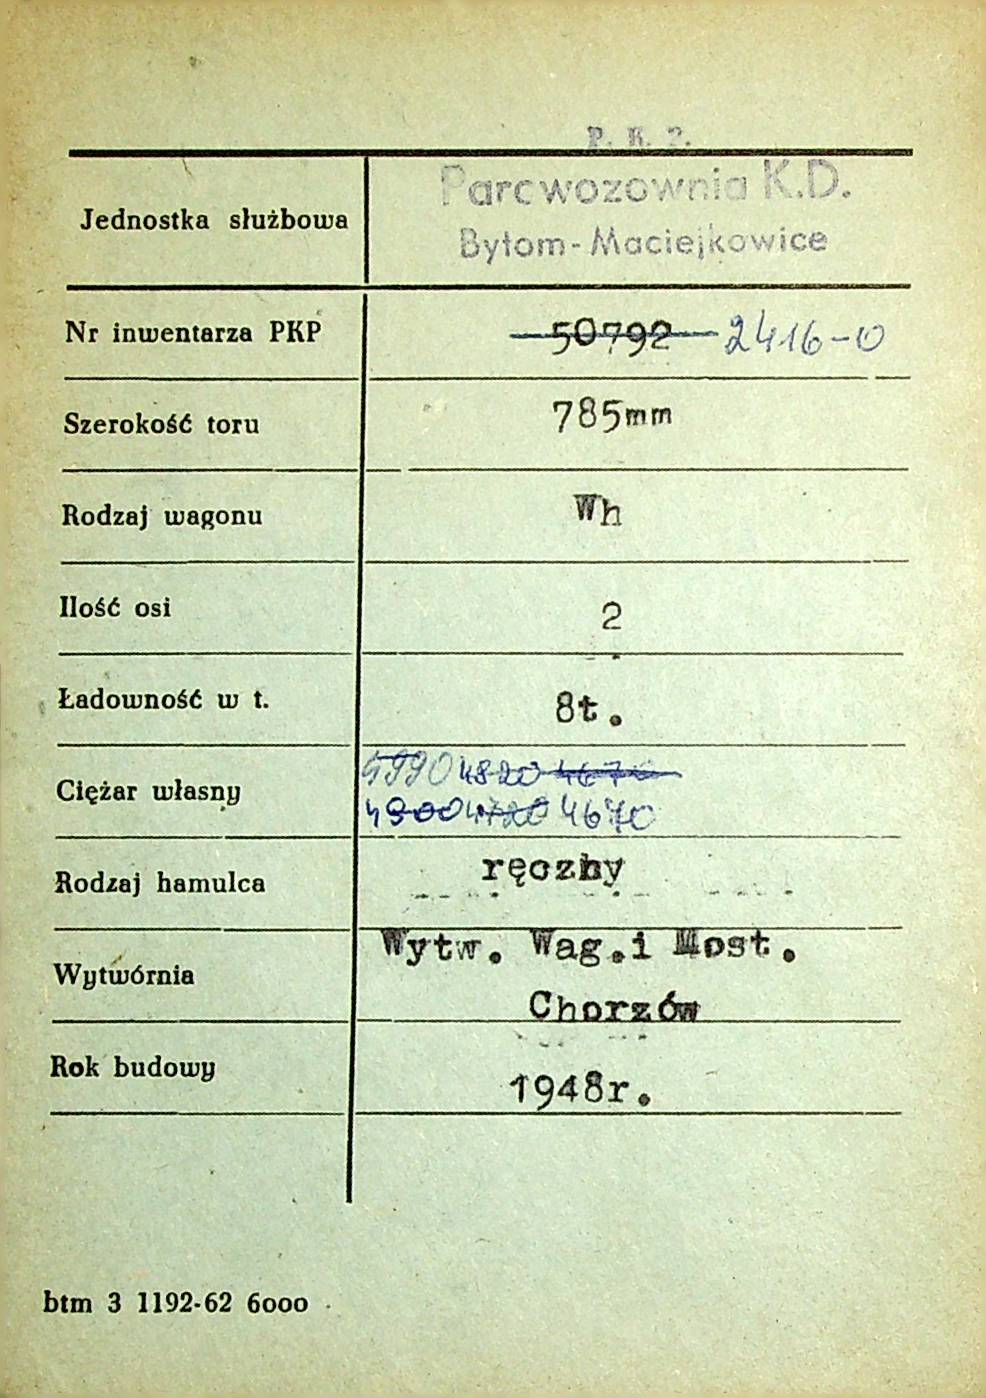 P. K. P.
Parowozownia K.D.
Jednostka służbowa
Bytom-Maciejkowice
Nr inwentarza PKP 50792 2416-0
Szerokość toru 785mm
Rodzaj wagonu Wh
Ilość osi 2
Ładowność w t. 8t.
4990 4820 4670
Ciężar własny
4900 4720 4670
Rodzaj hamulca ręczny
Wytw. Wag.i Most.
Wytwórnia
Chorzów
Rok budowy 1948r.
btm 3 1192-62 6000